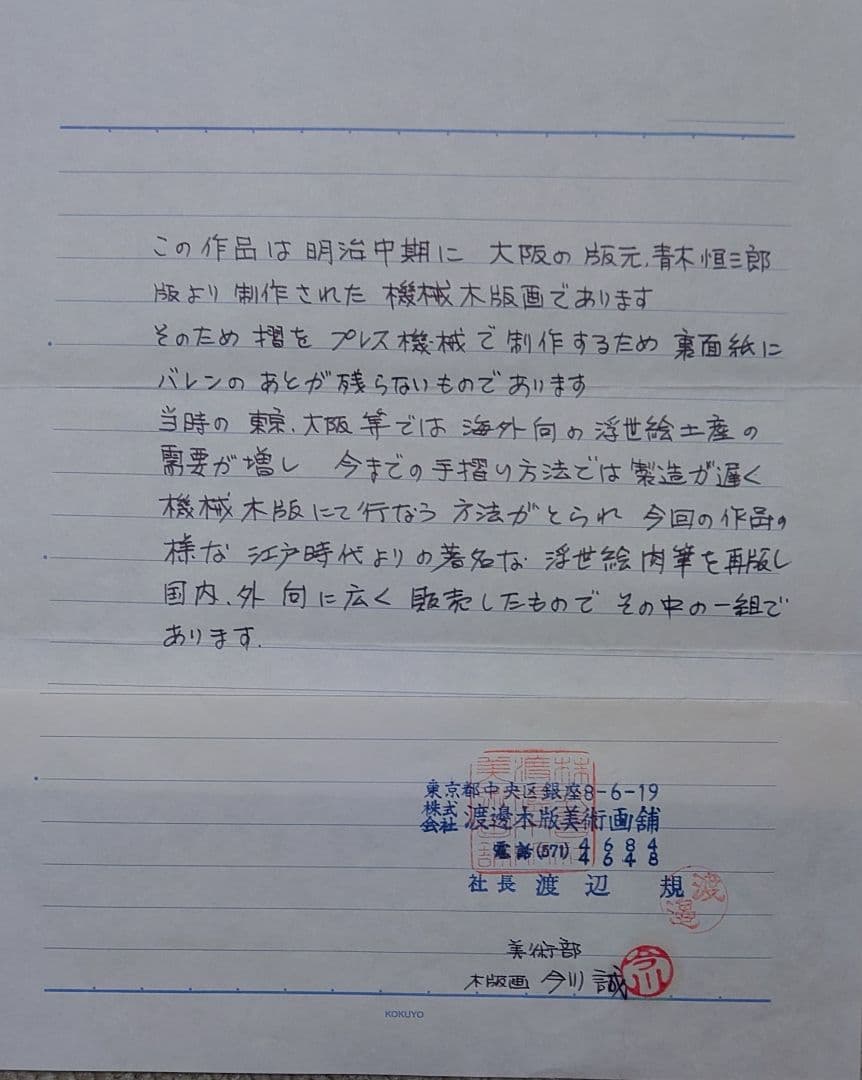 この作品は明治中期に 大阪の版元、青木恒三郎
版より制作された機械木版画であります
そのため摺をプレス機械で制作するため裏面紙に
バレンのあとが残らないものであります
当時の東京、大阪等では海外向の浮世絵土産の
需要が増し 今までの手摺り方法では製造が遅く
機械木版にて行なう方法がとられ今回の作品の
様な江戸時代よりの著名な浮世絵肉筆を再版し
国内、外向に広く販売したものでその中の一組で
あります.
東京都中央区銀座8-6-19
株式会社 渡邊木版美術画舗
電話(571) 4684
4648
社長 渡辺 規
渡邉
美術部
木版画 今川 誠
今川
KOKUYO